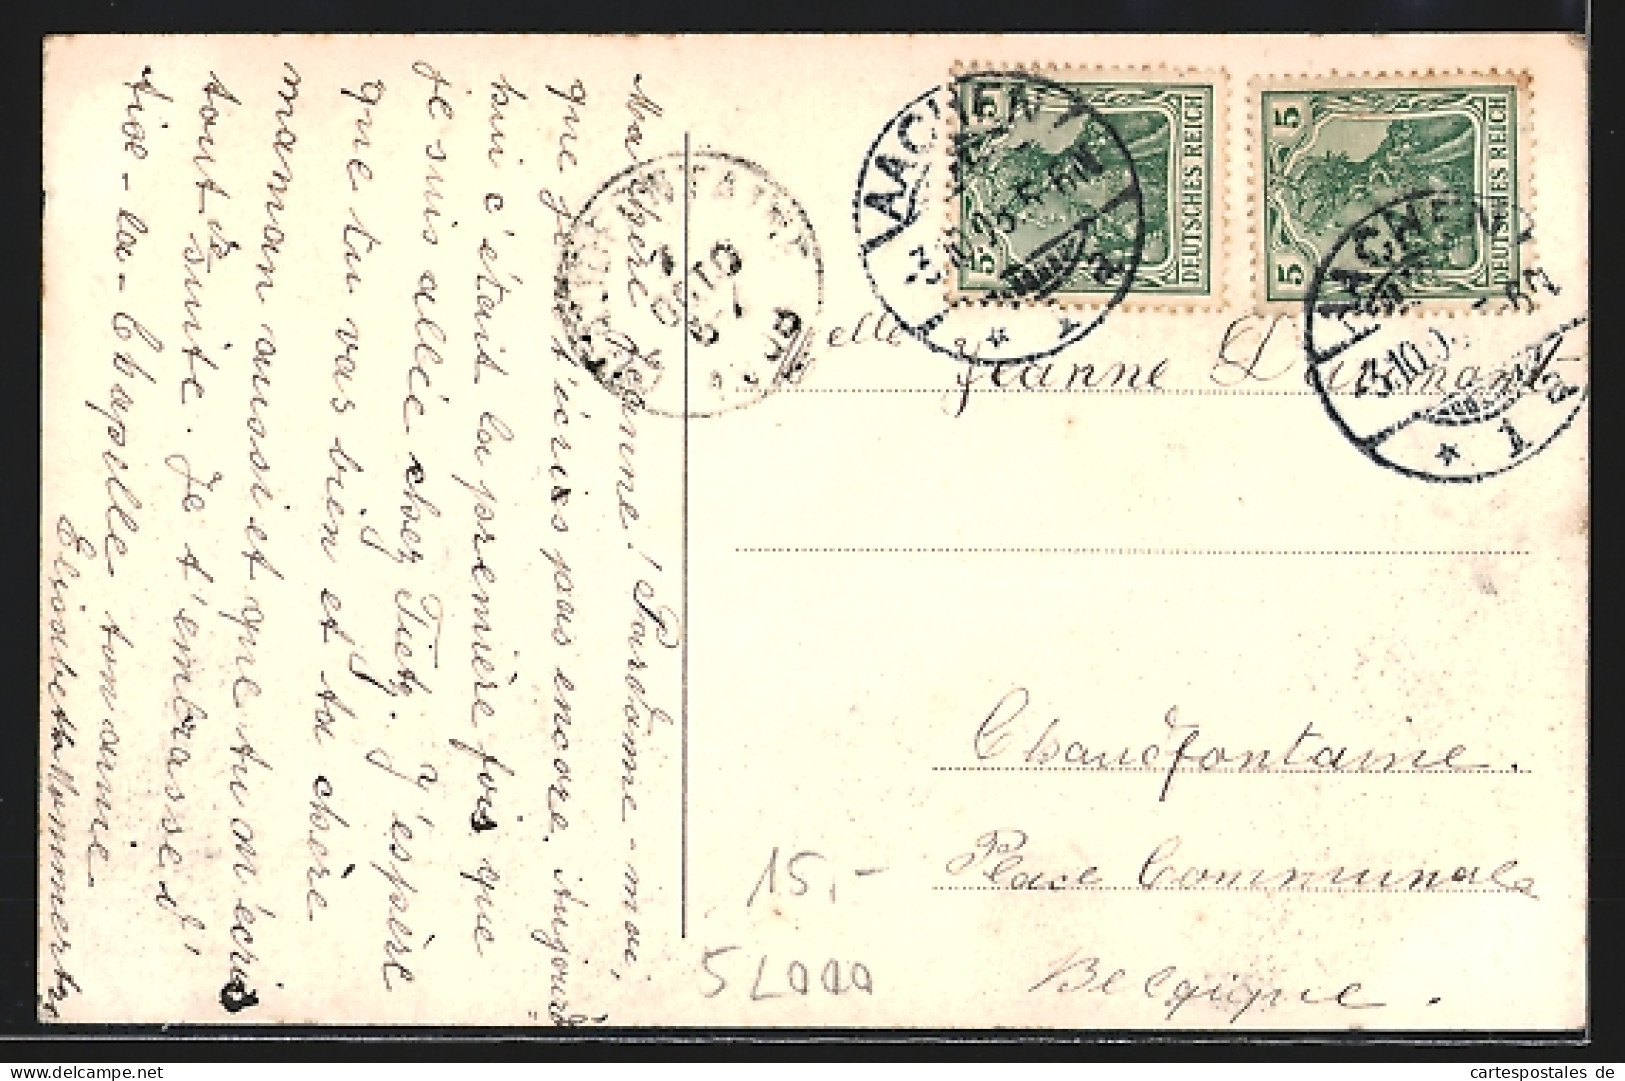 Ma chère Jeanne! Pardonne-moi,
que je ne t'écris pas encore. Aujourd'
hui c'était la première fois que
je suis allée chez Tietz. J'espère
que tu vas bien et ta chère
maman aussi et que tu m'écris
tout d suite. Je t'embrasse d'
Aix-la-Chapelle ton amie
Elisabeth
elle Jeanne
Chaudfontaine.
Place Communale
Belgique.
15.-
5 L000
5
5
DEUTSCHES REICH
5
5
DEUTSCHES REICH
AACHEN
* 1 a
AACHEN
3.10.0
* 1 a
www.cartespostales.de
cartespostales de